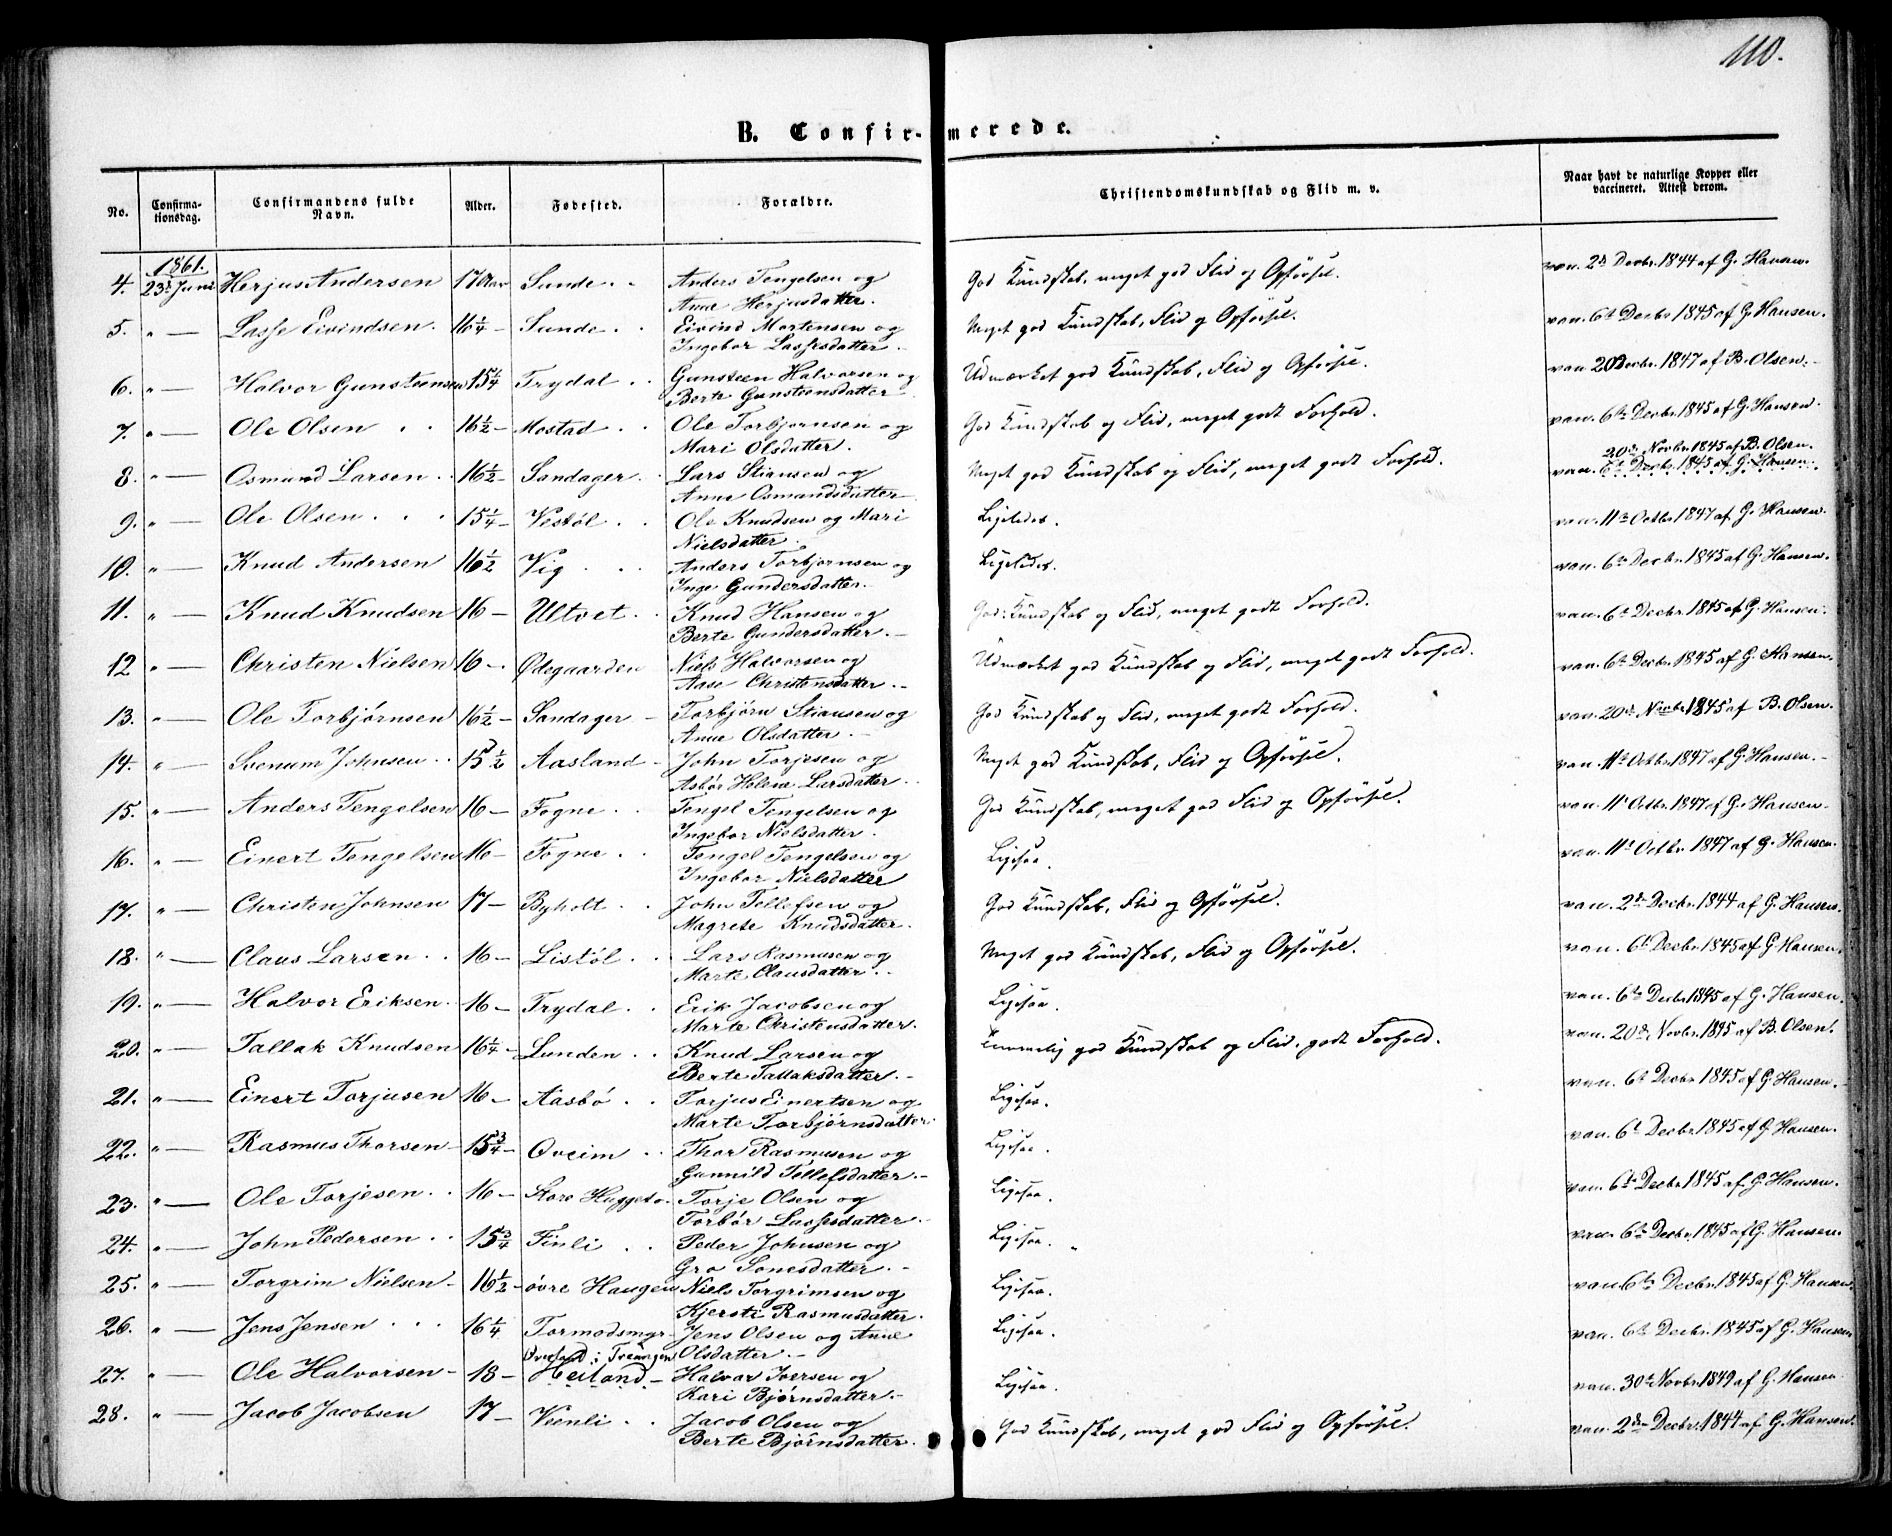 110.
B. Confirmerede.
No.
Confirmationsdag.
Confirmandens fulde Navn.
Alder.
Fødested.
Forældre.
Christendomskundskab og Flid m. v.
Naar havt de naturlige Kopper eller vaccineret. Attest derom.
1861.
4. 23de Juni Herjus Andersen 17 Aar Sunde . . Anders Tengelsen og God Kundskab, meget god Flid og Opførsel. vac. 2den Decbr. 1844 af G. Hansen.
Anne Herjusdatter.
5. " — Lasse Eivindsen. 16 1/4 – Sunde. . Eivind Mortensen og Meget god Kundskab, Flid og Opførsel. vac. 6te Decbr. 1845 af G. Hansen.
Ingebor Lassesdatter.
6. " — Halvor Gunsteensen 15 1/4 Trydal . . Gunsteen Halvorsen og Udmærket god Kundskab, Flid og Opførsel. vac. 20 Decbr. 1847 af B. Olsen.
Berte Gunsteensdatter
7. " — Ole Olsen . . 16 1/2 – Mostad . . Ole Torbjørnsen og God Kundskab og Flid, meget godt Forhold. vac. 6te Decbr. 1845 af G. Hansen.
Mari Olsdatter.
20de Novbr. 1845 af B. Olsen.
8. " — Osmund Larsen . . 16 1/2 – Sandager . Lars Stiansen og Meget god Kundskab og Flid, meget godt Forhold. vac. 6te Decbr. 1845 af G. Hansen.
Anne Osmandsdatter
9. " — Ole Olsen . . . 15 1/4 – Vestøl . . Ole Knudsen og Mari Ligeledes. vac. 11te Octbr. 1847 af G. Hansen.
Nielsdatter.
10. " — Knud Andersen 16 1/2 Vig . . . Anders Torbjørnsen og Ligeledes. vac. 6te Decbr. 1845 af G. Hansen.
Inge Gundersdatter.
11. " — Knud Knudsen 16 – Ultvet . . Knud Hansen og God Kundskab og Flid, meget godt Forhold. vac. 6te Decbr. 1845 af G. Hansen.
Berte Gundersdatter.
12 " — Christen Nielsen 16 – Ødegaarden Niels Halvorsen og Udmærket god Kundskab og Flid, meget godt Forhold. vac. 6te Decbr. 1845 af G. Hansen.
Aase Christensdatter.
13. " — Ole Torbjørnsen 16 1/2 – Sandager – Torbjørn Stiansen og God Kundskab og Flid, meget godt Forhold. vac. 20de Novbr. 1845 af B. Olsen.
Anne Olsdatter.
14. " — Svenum Johnsen . . 15 1/2 Aasland – John Torjesen og Meget god Kundskab, Flid og Opførsel. vac. 11te Octbr. 1847 af G. Hansen.
Asbør Helene Larsdatter.
15. " — Anders Tengelsen 16 – Fogne . Tengel Tengelsen og God Kundskab, meget god Flid og Opførsel. vac. 11te Octbr. 1847 af G. Hansen.
Ingebor Nielsdatter.
16. " — Einert Tengelsen 16 – Fogne . . Tengel Tengelsen og Ligesaa. vac. 11te Octbr. 1847 af G. Hansen.
Ingebor Nielsdatter
17. " — Christen Johnsen 17 – Byholt . . John Tellefsen og God Kundskab, Flid og Opførsel. vac. 2den Decbr. 1844 af G. Hansen.
Magrete Knudsdatter.
18. " — Claus Larsen . . 16 – Listøl . . Lars Rasmusen og Meget god Kundskab, Flid og Opførsel. vac. 6te Decbr. 1845 af G. Hansen.
Marte Clausdatter.
19. " — Halvor Eriksen. 16 – Trydal . . Erik Jacobsen og Ligesaa. vac. 6te Decbr. 1845 af G. Hansen.
Marte Christensdatter.
20. " — Tallak Knudsen 16 1/4 – Lunden . . Knud Larsen og Temmelig god Kundskab og Flid, godt Forhold. vac. 20de Novbr. 1845 af B. Olsen.
Berte Tallaksdatter.
21. " — Einert Torjusen 16 – Aasbø . . Torjus Einertsen og Ligesaa. vac. 6te Decbr. 1845 af G. Hansen.
Marte Torbjørnsdatter.
22. " — Rasmus Thorsen – 15 3/4 – Oveim . . Thor Rasmusen og Ligesaa. vac. 6te Decbr. 1845 af G. Hansen.
Gunnild Tellefsdatter.
23. " — Ole Torjesen . . 16 – Store Huggeto Torje Olsen og Ligesaa. vac. 6te Decbr. 1845 af G. Hansen.
Torbør Lassesdatter.
24. " — John Pedersen . . 15 3/4 Finli . . Peder Johnsen og Ligesaa. vac. 6te Decbr. 1845 af G. Hansen.
Gro Sonesdatter.
25. " — Torgrim Nielsen – 16 1/2 – øvre Haugen Niels Torgrimsen og Ligesaa. vac. 6te Decbr. 1845 af G. Hansen.
Kjersti Rasmusdatter.
26. " — Jens Jensen . . . 16 1/4 Tormodsmyr Jens Olsen og Anne Ligesaa. vac. 6te Decbr. 1845 af G. Hansen
Olsdatter.
27. " — Ole Halvorsen – 18 – Heiland – Halvor Iversen og Ligesaa. vac. 30te Novbr. 1849 af G. Hansen
Kari Bjørnsdatter.
28. " — Jacob Jacobsen 17 – Veenli . . Jacob Olsen og God Kundskab, meget god Flid og Opførsel. vac. 2den Decbr. 1844 af G. Hansen.
Berte Bjørnsdatter.